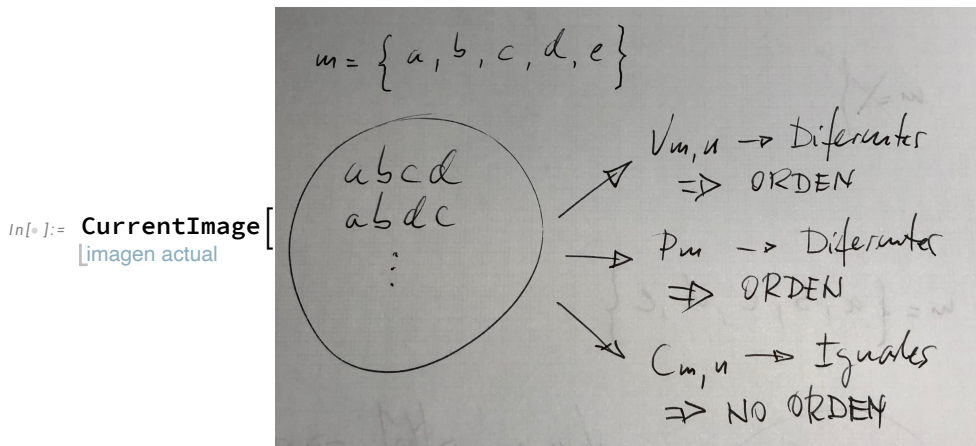 m = { a, b, c, d, e }
In[ ]:= CurrentImage[
imagen actual
abcd
abdc
⋮
Vm,n → Diferentes
⇒ ORDEN
Pm → Diferentes
⇒ ORDEN
Cm,n → Iguales
⇒ NO ORDEN